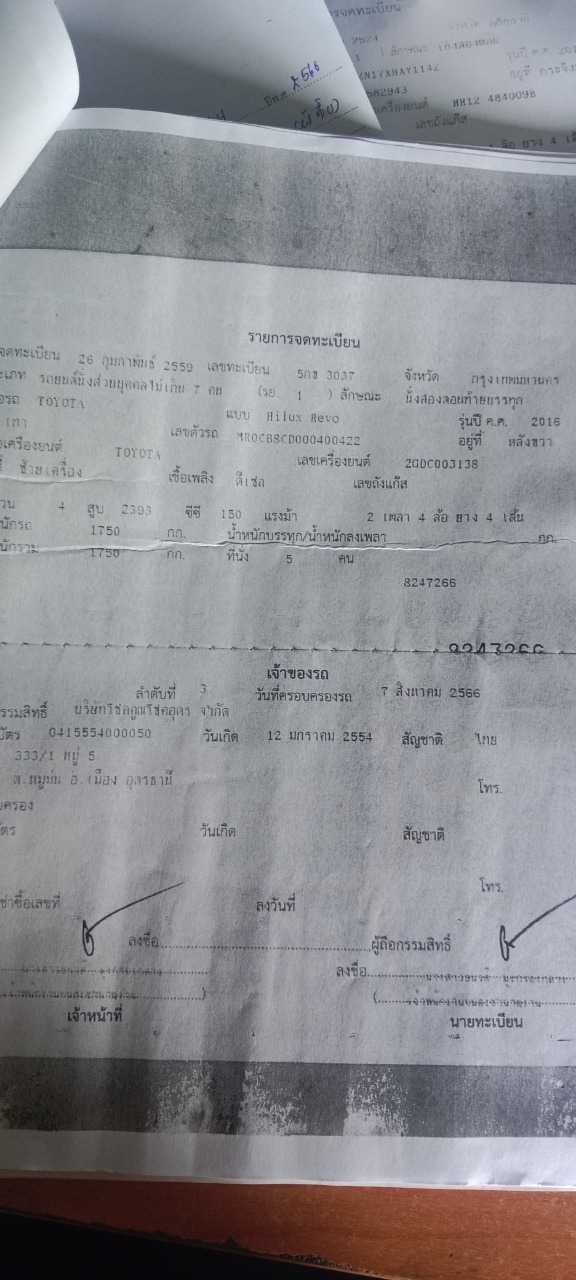 ารจดทะเบียน
จังหวัด
2524
ลักษณะ เก๋งสองตอน
รุ่นปี ค.ศ. 201
อยู่ที่
682943
เครื่องยนต์ HH12 4840098
เลขถังแก๊ส
ล้อ ยาง 4
2566
รายการจดทะเบียน
จดทะเบียน 26 กุมภาพันธ์ 2559 เลขทะเบียน 5กฮ 3037 จังหวัด กรุงเทพมหานคร
ะเภท รถยนต์นั่งส่วนบุคคลไม่เกิน 7 คน (รย. 1 ) ลักษณะ นั่งสองตอนท้ายบรรทุก
อรถ TOYOTA แบบ Hilux Revo รุ่นปี ค.ศ. 2016
เทา เลขตัวรถ MR0CB8CD000400422 อยู่ที่ หลังขวา
อเครื่องยนต์ TOYOTA เลขเครื่องยนต์ 2GDC003138
ซ้ายเครื่อง เชื้อเพลิง ดีเซล เลขถังแก๊ส
วน 4 สูบ 2393 ซีซี 150 แรงม้า 2 เพลา 4 ล้อ ยาง 4 เส้น
นักรถ 1750 กก. น้ำหนักบรรทุก/น้ำหนักลงเพลา กก.
นักรวม 1750 กก. ที่นั่ง 5 คน
8247266
8247266
เจ้าของรถ
ลำดับที่ 3 วันที่ครอบครองรถ 7 สิงหาคม 2566
รรมสิทธิ์ บริษัทโชคอูมโชคอุดร จำกัด
ัตร 0415554000050 วันเกิด 12 มกราคม 2554 สัญชาติ ไทย
333/1 หมู่ 5
ต.หมูม่น อ.เมือง อุดรธานี โทร.
บครอง
ัตร วันเกิด สัญชาติ
โทร.
ช่าซื้อเลขที่ ลงวันที่
ลงชื่อ ผู้ถือกรรมสิทธิ์
ลงชื่อ
เจ้าหน้าที่ นายทะเบียน